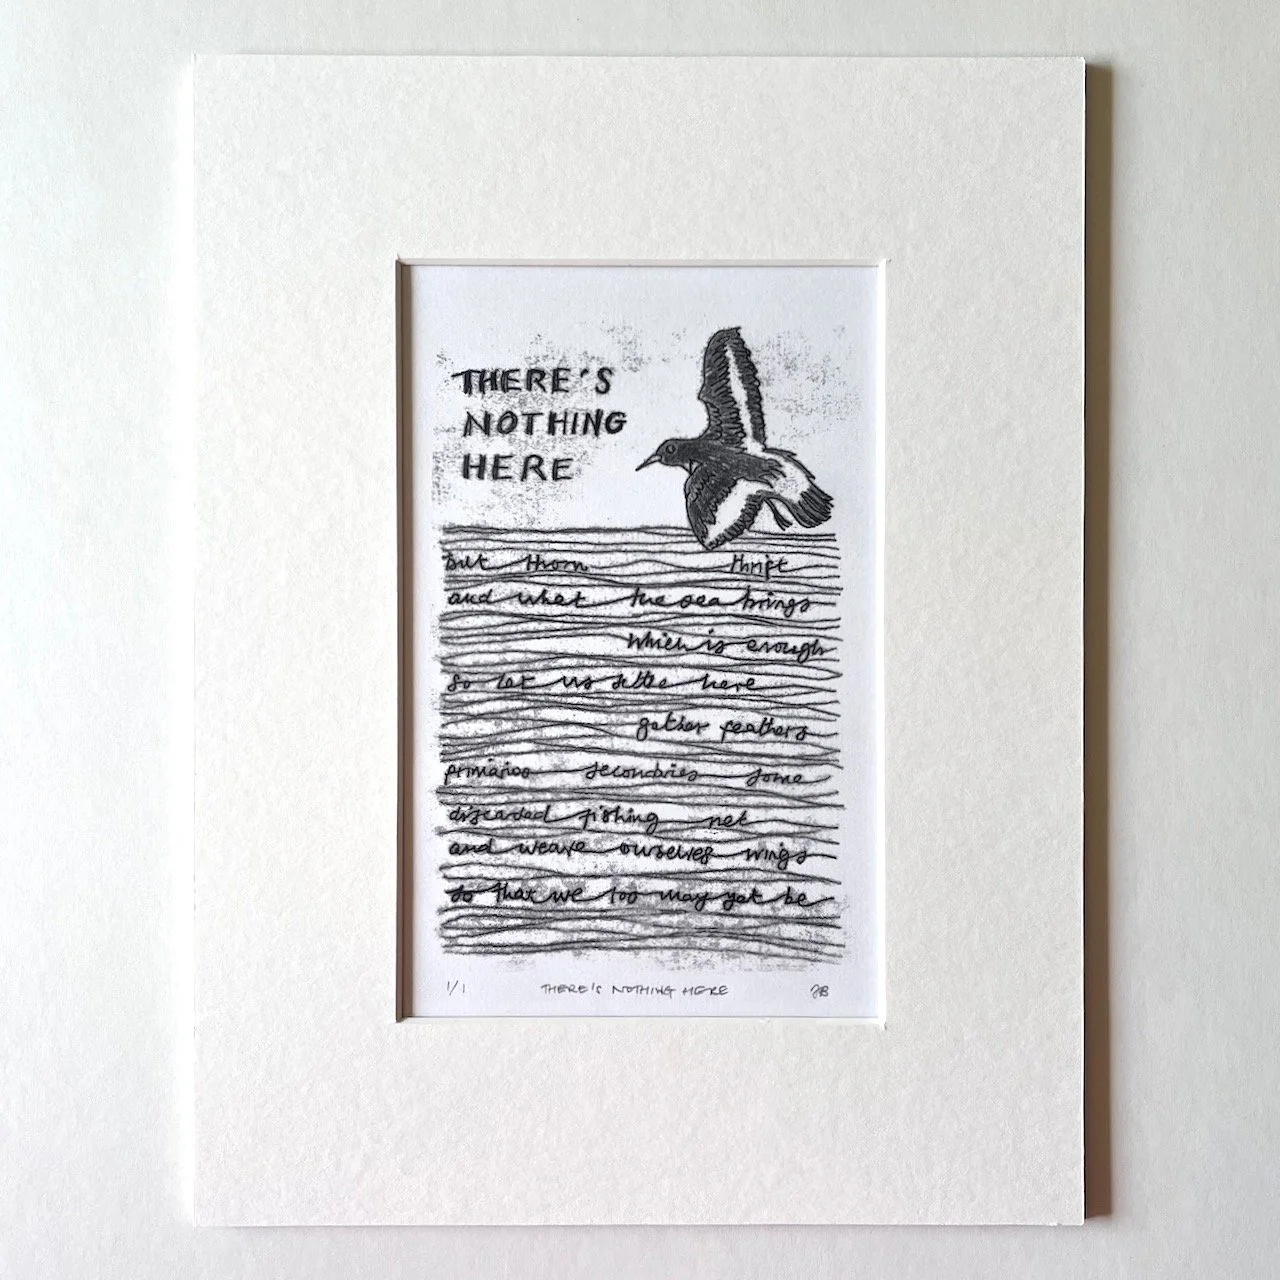 THERE'S
NOTHING
HERE
but thorn thrift
and what the sea brings
which is enough
so let us settle here
gather feathers
primaries secondaries some
discarded fishing net
and weave ourselves wings
so that we too may yet be
1/1 THERE'S NOTHING HERE JB